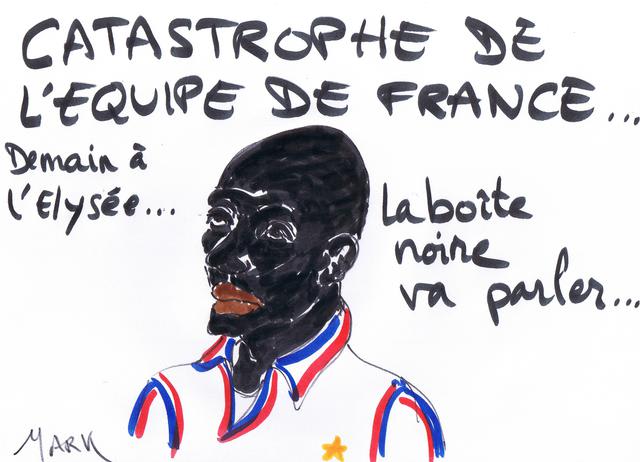 CATASTROPHE DE
L'EQUIPE DE FRANCE...
Demain à
l'Elysée...
La boîte
noire
va parler...
MARK